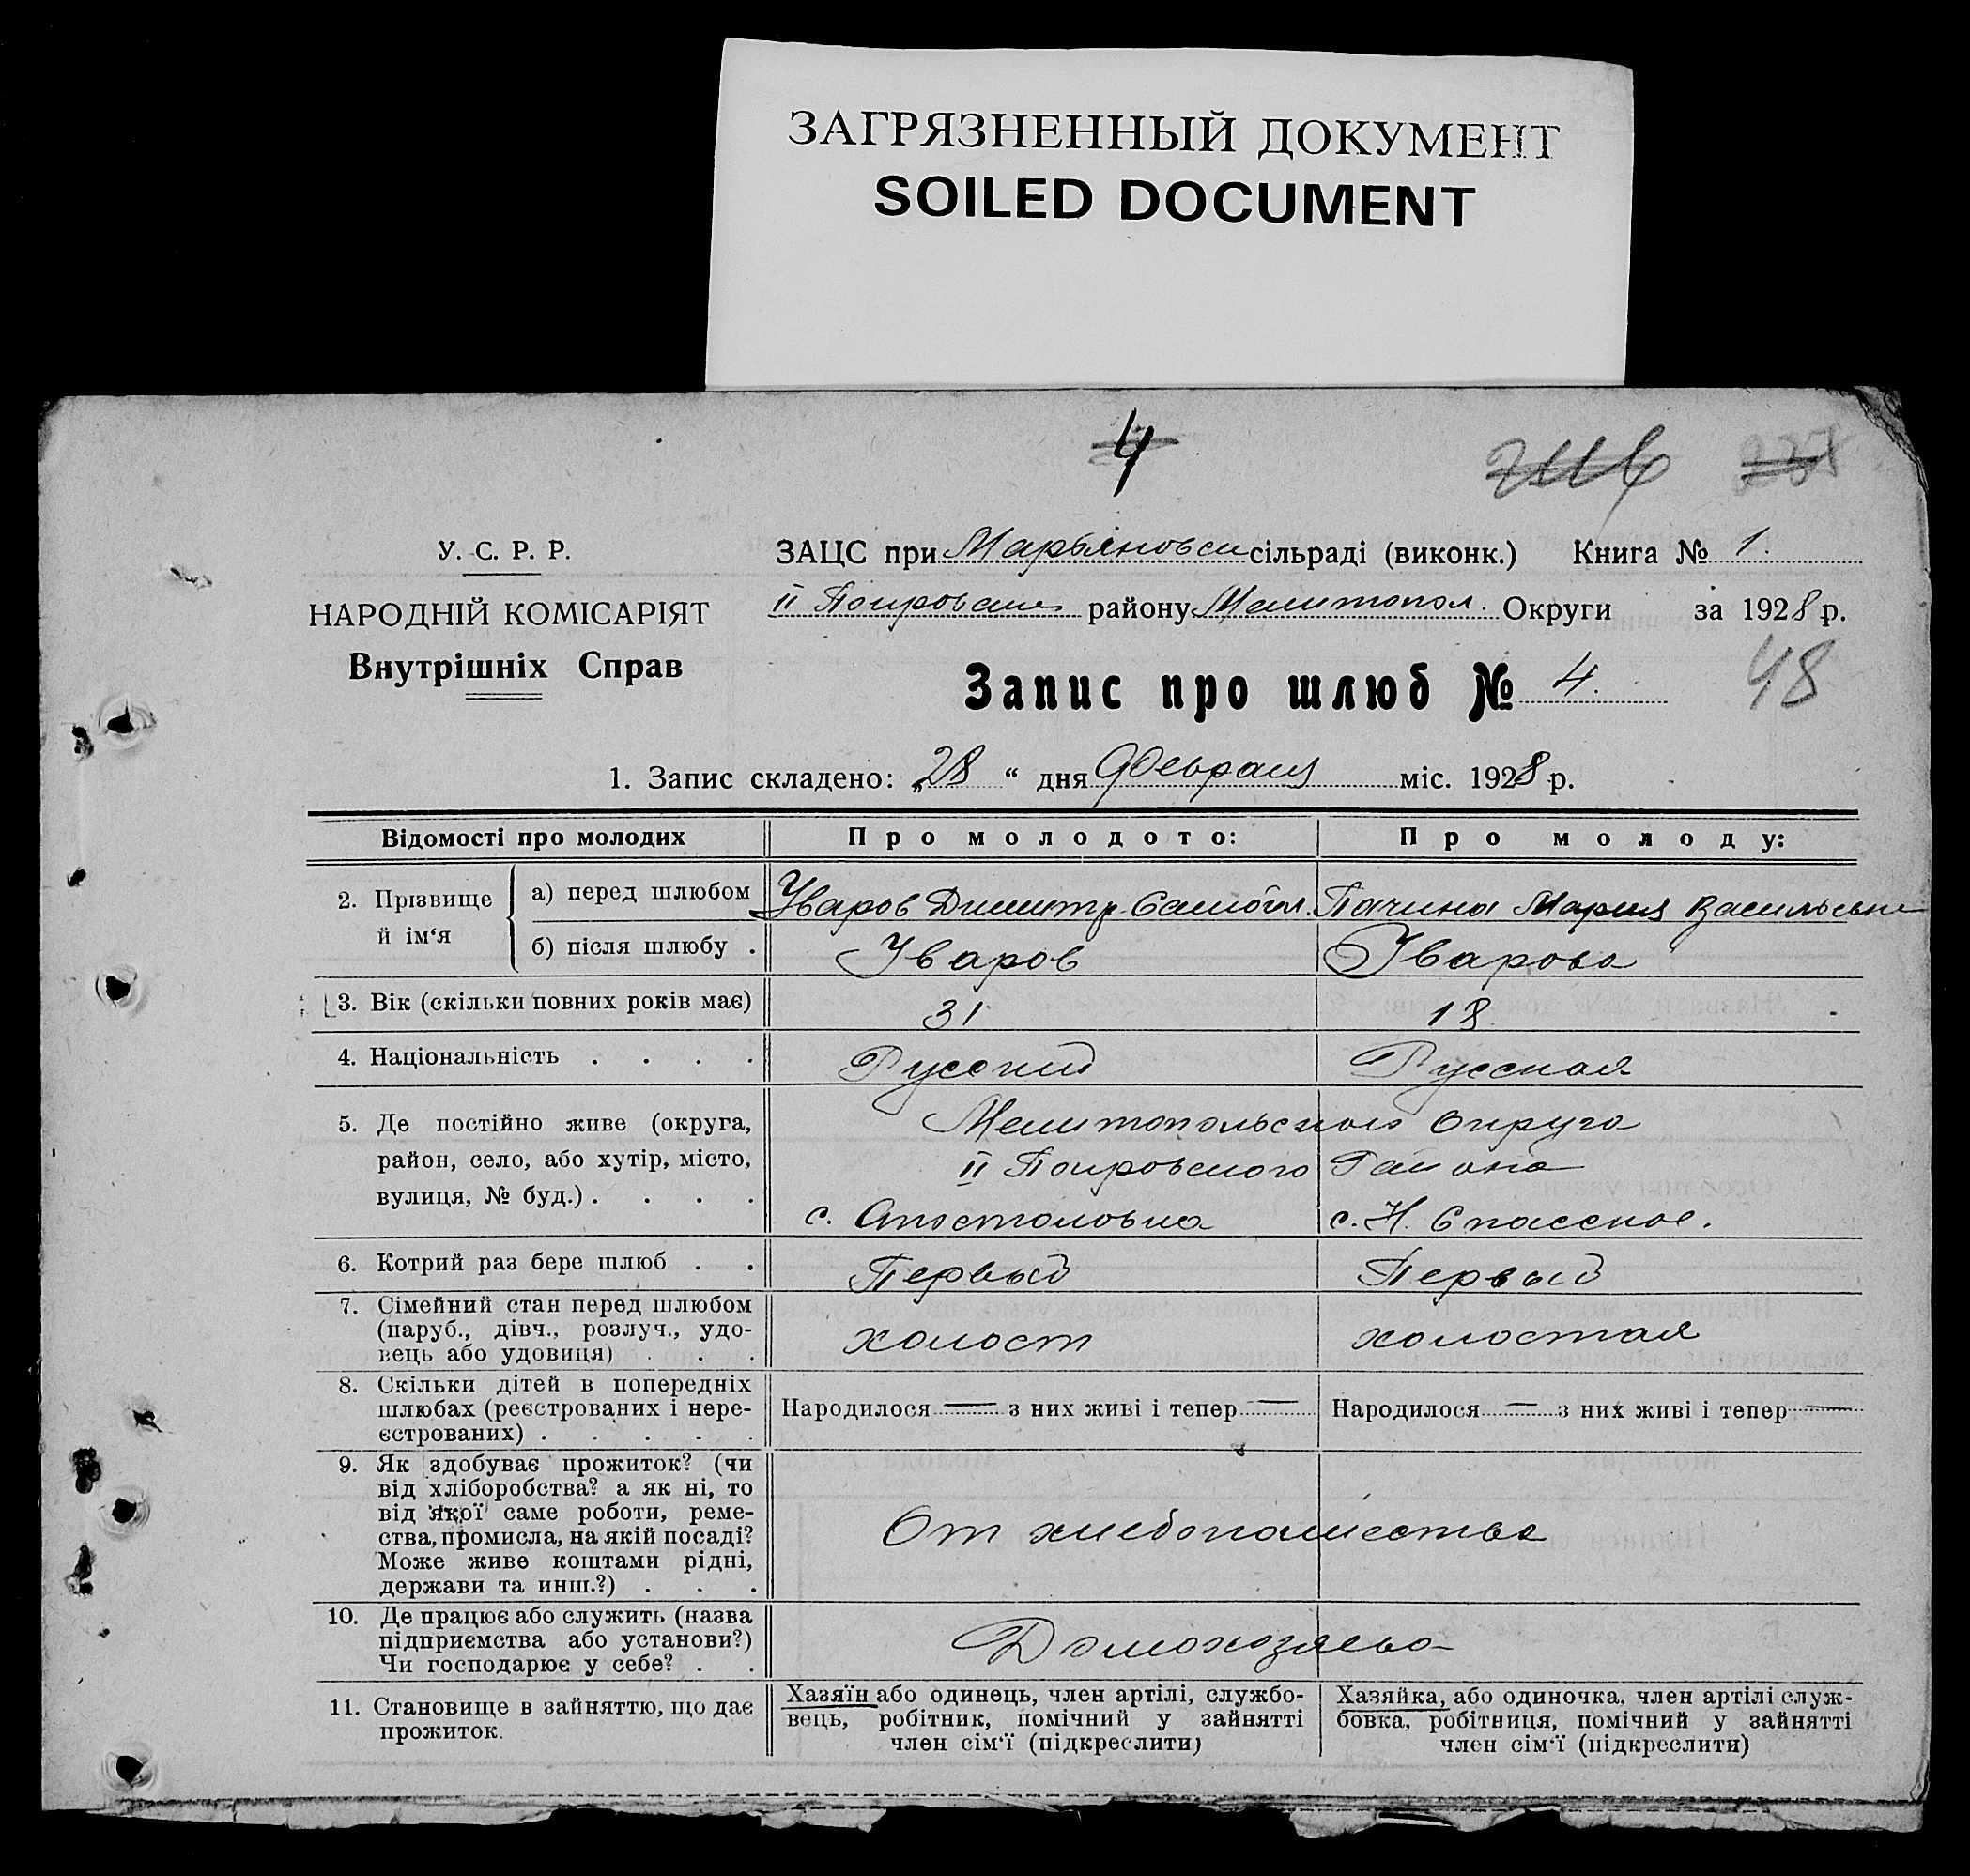 ЗАГРЯЗНЕННЫЙ ДОКУМЕНТ
SOILED DOCUMENT
4
У. С. Р. Р.
НАРОДНІЙ КОМІСАРІЯТ
Внутрішніх Справ
ЗАЦС при Марьяновск сільраді (виконк.) Книга № 1.
II Покровск району Мелитопол. Округи за 1928 р.
Запис про шлюб № 4.
48
1. Запис складено: „28“ дня Февраля міс. 1928 р.
Відомості про молодих Про молодого: Про молоду:
2. Прізвище й ім‘я
а) перед шлюбом Уваров Димитр Самойл. Пачина Мария Васильевн
б) після шлюбу . Уваров Уварова
3. Вік (скільки повних років має) 31 18
4. Національність . . . . Русский Русская
5. Де постійно живе (округа, Мелитопольского Округа
район, село, або хутір, місто, II Покровского Района
вулиця, № буд.) . . . . с. Апостоловка с. Н. Спасское.
6. Котрий раз бере шлюб . . Первый Первый
7. Сімейний стан перед шлюбом
(паруб., дівч., розлуч., удо- холост холостая
вець або удовиця) . . .
8. Скільки дітей в попередніх
шлюбах (реєстрованих і нере- Народилося — з них живі і тепер — Народилося — з них живі і тепер —
єстрованих) . . . . .
9. Як здобуває прожиток? (чи
від хліборобства? а як ні, то
від якої саме роботи, реме-
ства, промисла, на якій посаді? От хлебопашества
Може живе коштами рідні,
держави та инш.?) . . .
10. Де працює або служить (назва
підприємства або установи?) Домохозяева
Чи господарює у себе? . .
11. Становище в зайняттю, що дає
прожиток.
Хазяїн або одинець, член артілі, службо-
вець, робітник, помічний у зайнятті
член сім‘ї (підкреслити)
Хазяйка, або одиночка, член артілі служ-
бовка, робітниця, помічний у зайнятті
член сім‘ї (підкреслити)